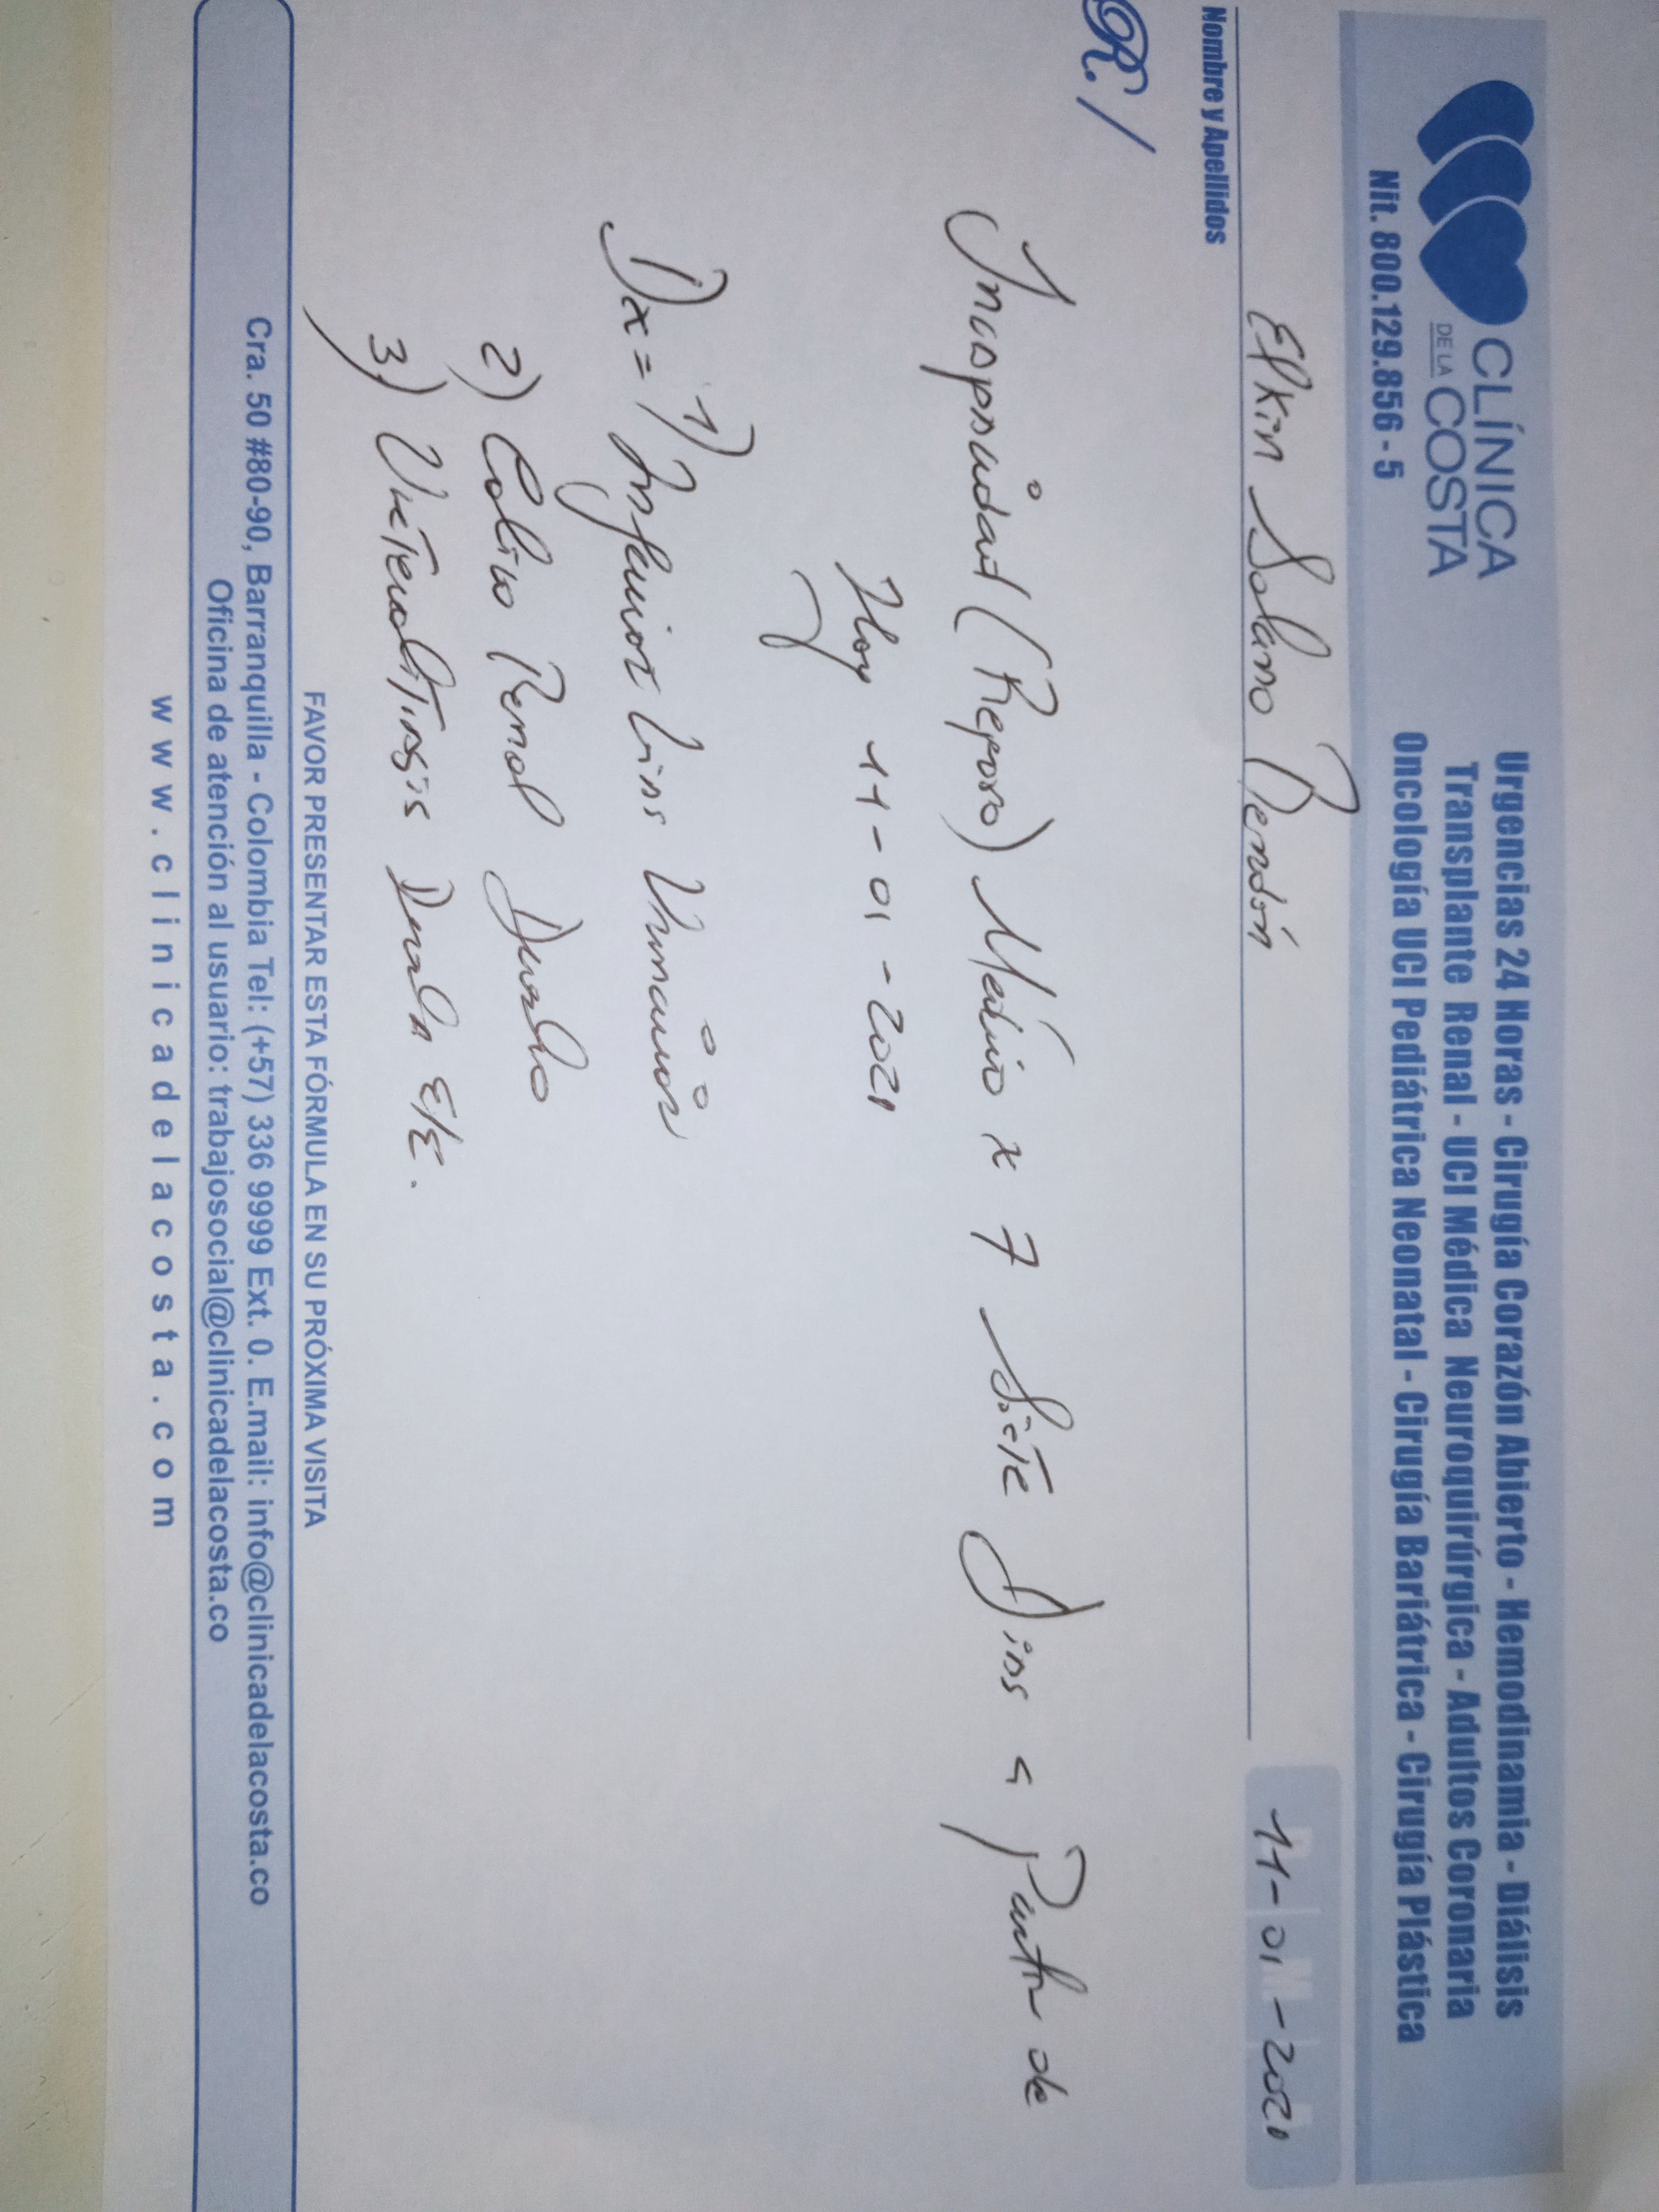 CLÍNICA
DE LA COSTA
Nit. 800.129.856 - 5
Urgencias 24 Horas - Cirugía Corazón Abierto - Hemodinamia - Diálisis
Transplante Renal - UCI Médica Neuroquirúrgica - Adultos Coronaria
Oncología UCI Pediátrica Neonatal - Cirugía Bariátrica - Cirugía Plástica
Elkin Solano Rendón 11-01-2021
Nombre y Apellidos
R./
Incapacidad (Reposo) Médico x 7 Siete Dias a Partir de
Hoy 11-01-2021
Dx = 1) Vias Urinarias
2) Colico Renal Derecho
3) Ureterolitiasis Derecha E/E.
FAVOR PRESENTAR ESTA FÓRMULA EN SU PRÓXIMA VISITA
Cra. 50 #80-90, Barranquilla - Colombia Tel: (+57) 336 9999 Ext. 0. E.mail: info@clinicadelacosta.co
Oficina de atención al usuario: trabajosocial@clinicadelacosta.co
www.clinicadelacosta.com